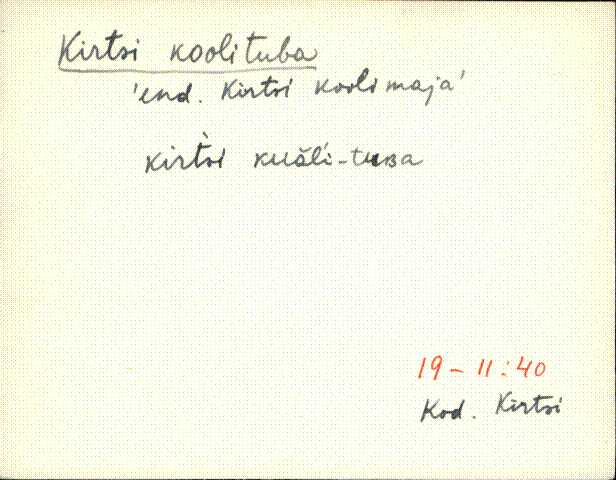 Kirtsi koolituba
'end. Kirtsi koolimaja'
kirt̀si kuăĺi-tuʙa
19-11:40
Kod. Kirtsi